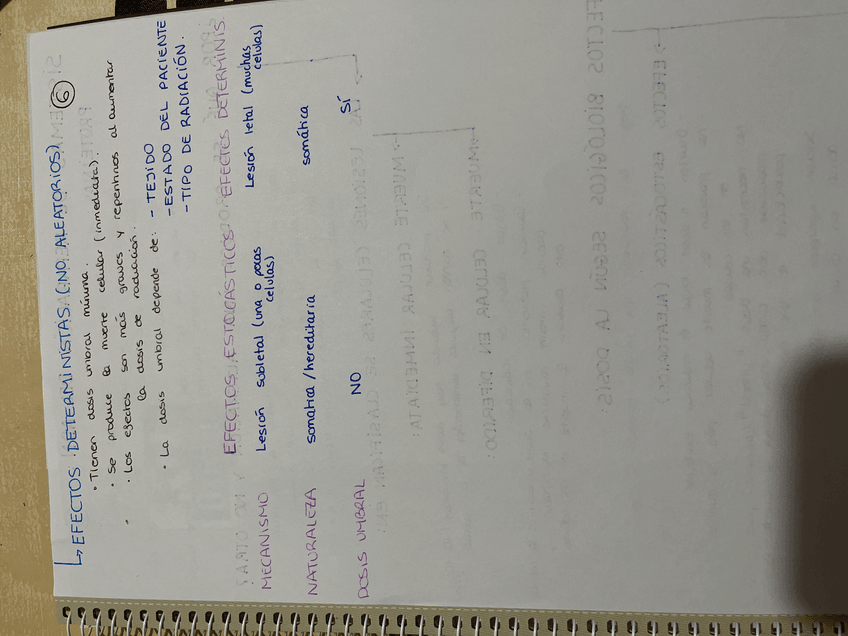 6
↳ EFECTOS DETERMINISTAS (NO ALEATORIOS)
· Tienen dosis umbral mínima.
· Se produce la muerte celular (inmediata).
· Los efectos son más graves y repentinos al aumentar
la dosis de radiación.
· La dosis umbral depende de: - TEJIDO
- ESTADO DEL PACIENTE
- TIPO DE RADIACIÓN.
EFECTOS ESTOCÁSTICOS EFECTOS DETERMINIS.
MECANISMO Lesión subletal (una o pocas celulas) Lesión letal (muchas celulas)
NATURALEZA somatica/hereditaria somática
DOSIS UMBRAL NO SÍ